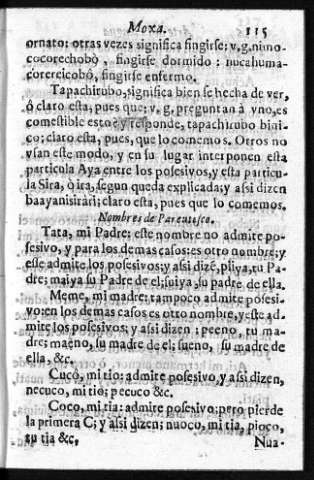 Moxa. 115
ornato: otras vezes significa fingirse; v,g,nimo-
cocorechobò, fingirse dormido: nucahuma-
corereicobò, fingirse enfermo.
Tapachirubo, significa bien se hecha de ver,
ò claro esta, pues que; v, g, preguntan à vno, es
comestible esto è y responde, tapachirubo bini-
co; claro esta, pues, que lo comemos. Otros no
vsan este modo, y en su lugar interponen esta
particula Aya entre los posesivos, y esta particu-
la Sira, ò ira, segun queda explicada; y assi dizen
baayanisiràri; claro esta, pues que lo comemos.
Nombres de Parentesco.
Tata, mi Padre; este nombre no admite po-
sesivo, y para los demas casos: es otro nombre; y
este admite los posesivos; y assi dizē, piiya, tu Pa-
dre; maiya su Padre de el; suiya, su padre de ella.
Meme, mi madre: tampoco admite posesi-
vo: en los demas casos es otro nombre, y este ad-
mite los posesivos; y assi dizen: peeno, tu ma-
dre; maeno, su madre de el; sueno, su madre de
ella, &c.
Cuco, mi tio: admite posesivo, y assi dizen,
necuco, mi tio; pecuco &c.
Coco, mi tia: admite posesivo; pero pierde
la primera C; y assi dizen; nuoco, mi tia, pioco,
tu tia &c,
Nua-